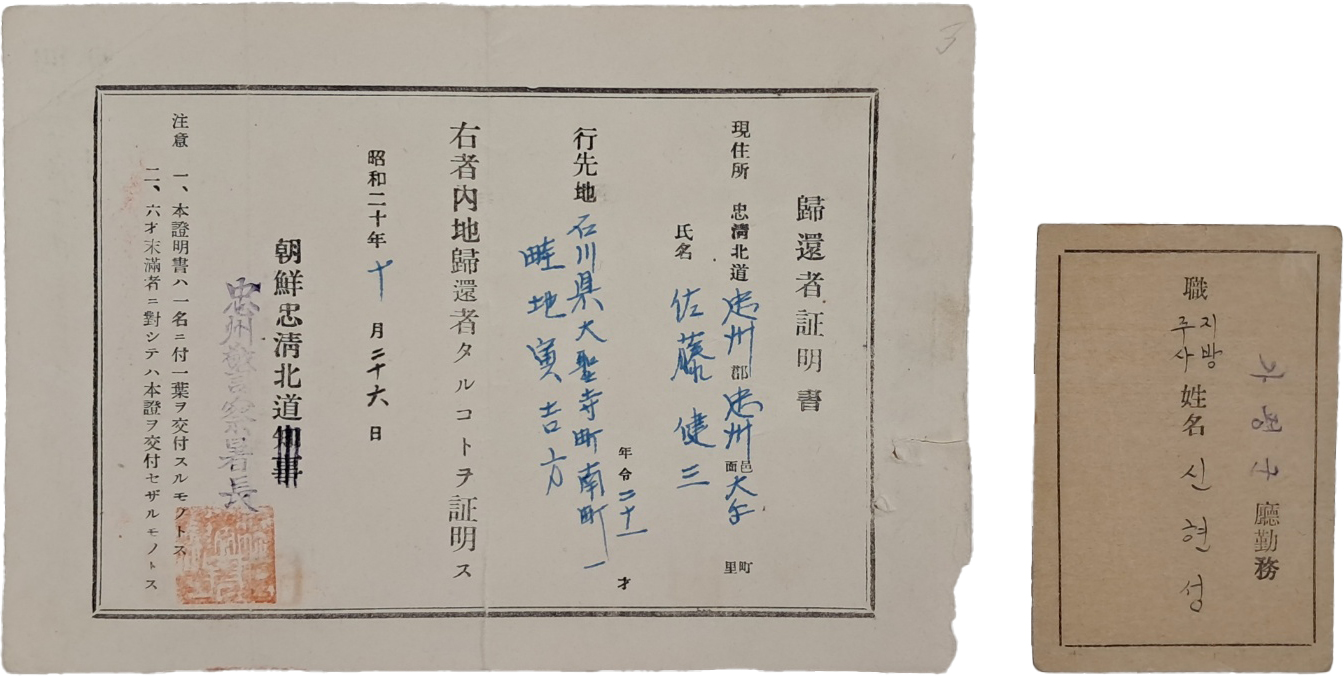 3
歸還者証明書
現住所 忠淸北道忠州郡忠州邑面大手町里
氏名 佐藤健三
年令二十一才
行先地 石川県大聖寺町南町一
畦地寅吉方
右者內地歸還者タルコトヲ証明ス
昭和二十年十月二十六日
朝鮮忠淸北道知事
忠州警察署長
注意 一、本證明書ハ一名ニ付一葉ヲ交付スルモノトス
二、六才末滿者ニ對シテハ本證ヲ交付セザルモノトス
가평군廳勤務
職 지방주사 姓名 신현성